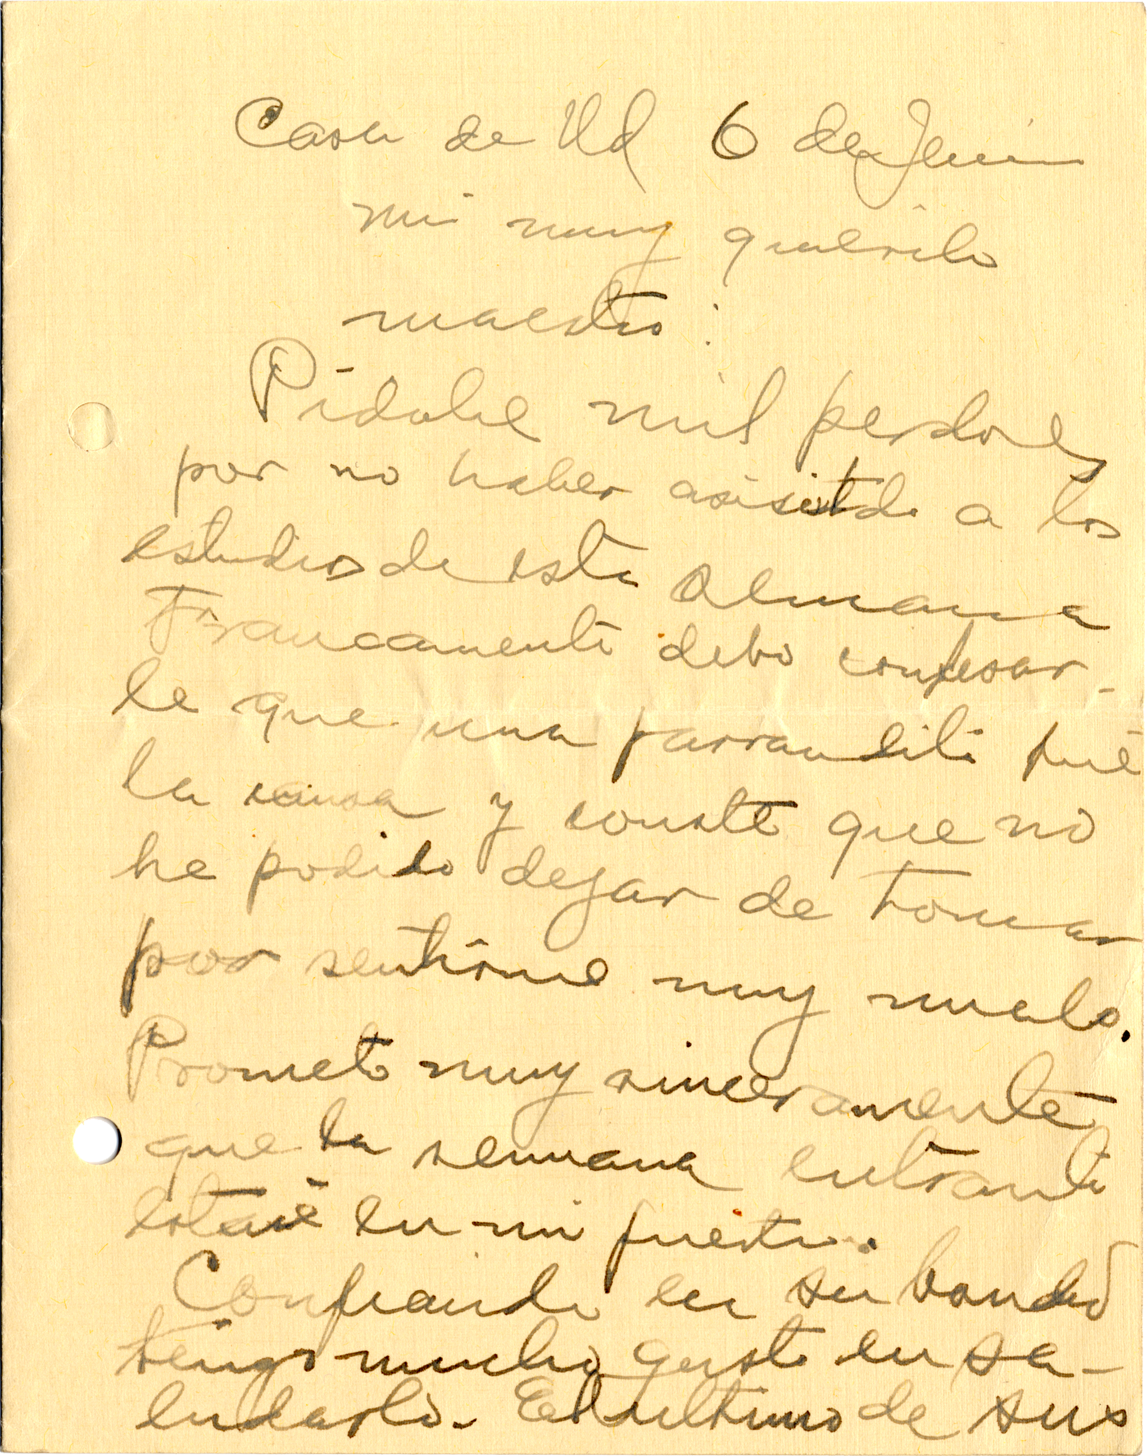 Casa de Ud 6 de Junio
mi muy querido
maestro:
Pídole mil perdones
por no haber asisistido a los
estudios de esta semana
Francamente debo confesar-
le que una parrandita fué
la causa y conste que no
he podido dejar de tomar
por sentirme muy malo.
Prometo muy sinceramente
que la semana entrante
estaré en mi puesto.
Confiando en su bondad
tengo mucho gusto en sa-
ludarlo. El ultimo de sus